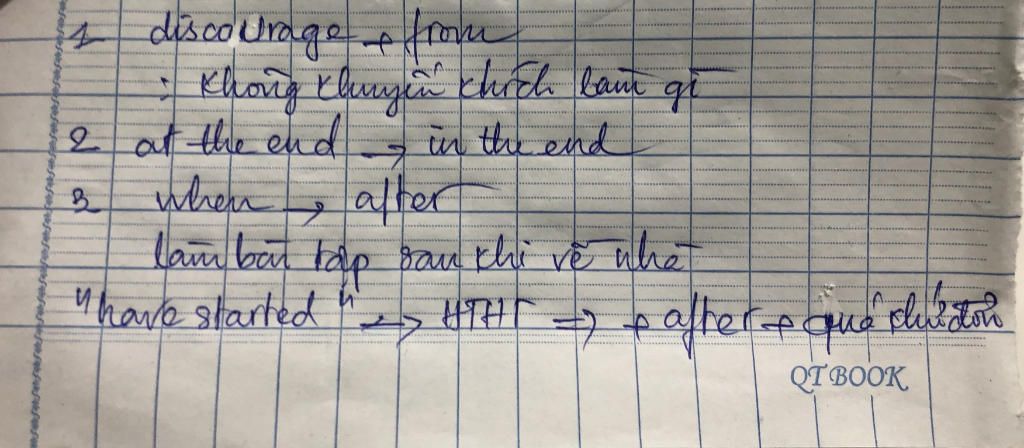 1 discourage + from
: không khuyến khích làm gì
2 at the end → in the end
3 when → after
làm bài tập sau khi về nhà
"have started" ↔ HTHT ⇒ + after + quá khứ đơn
QT BOOK